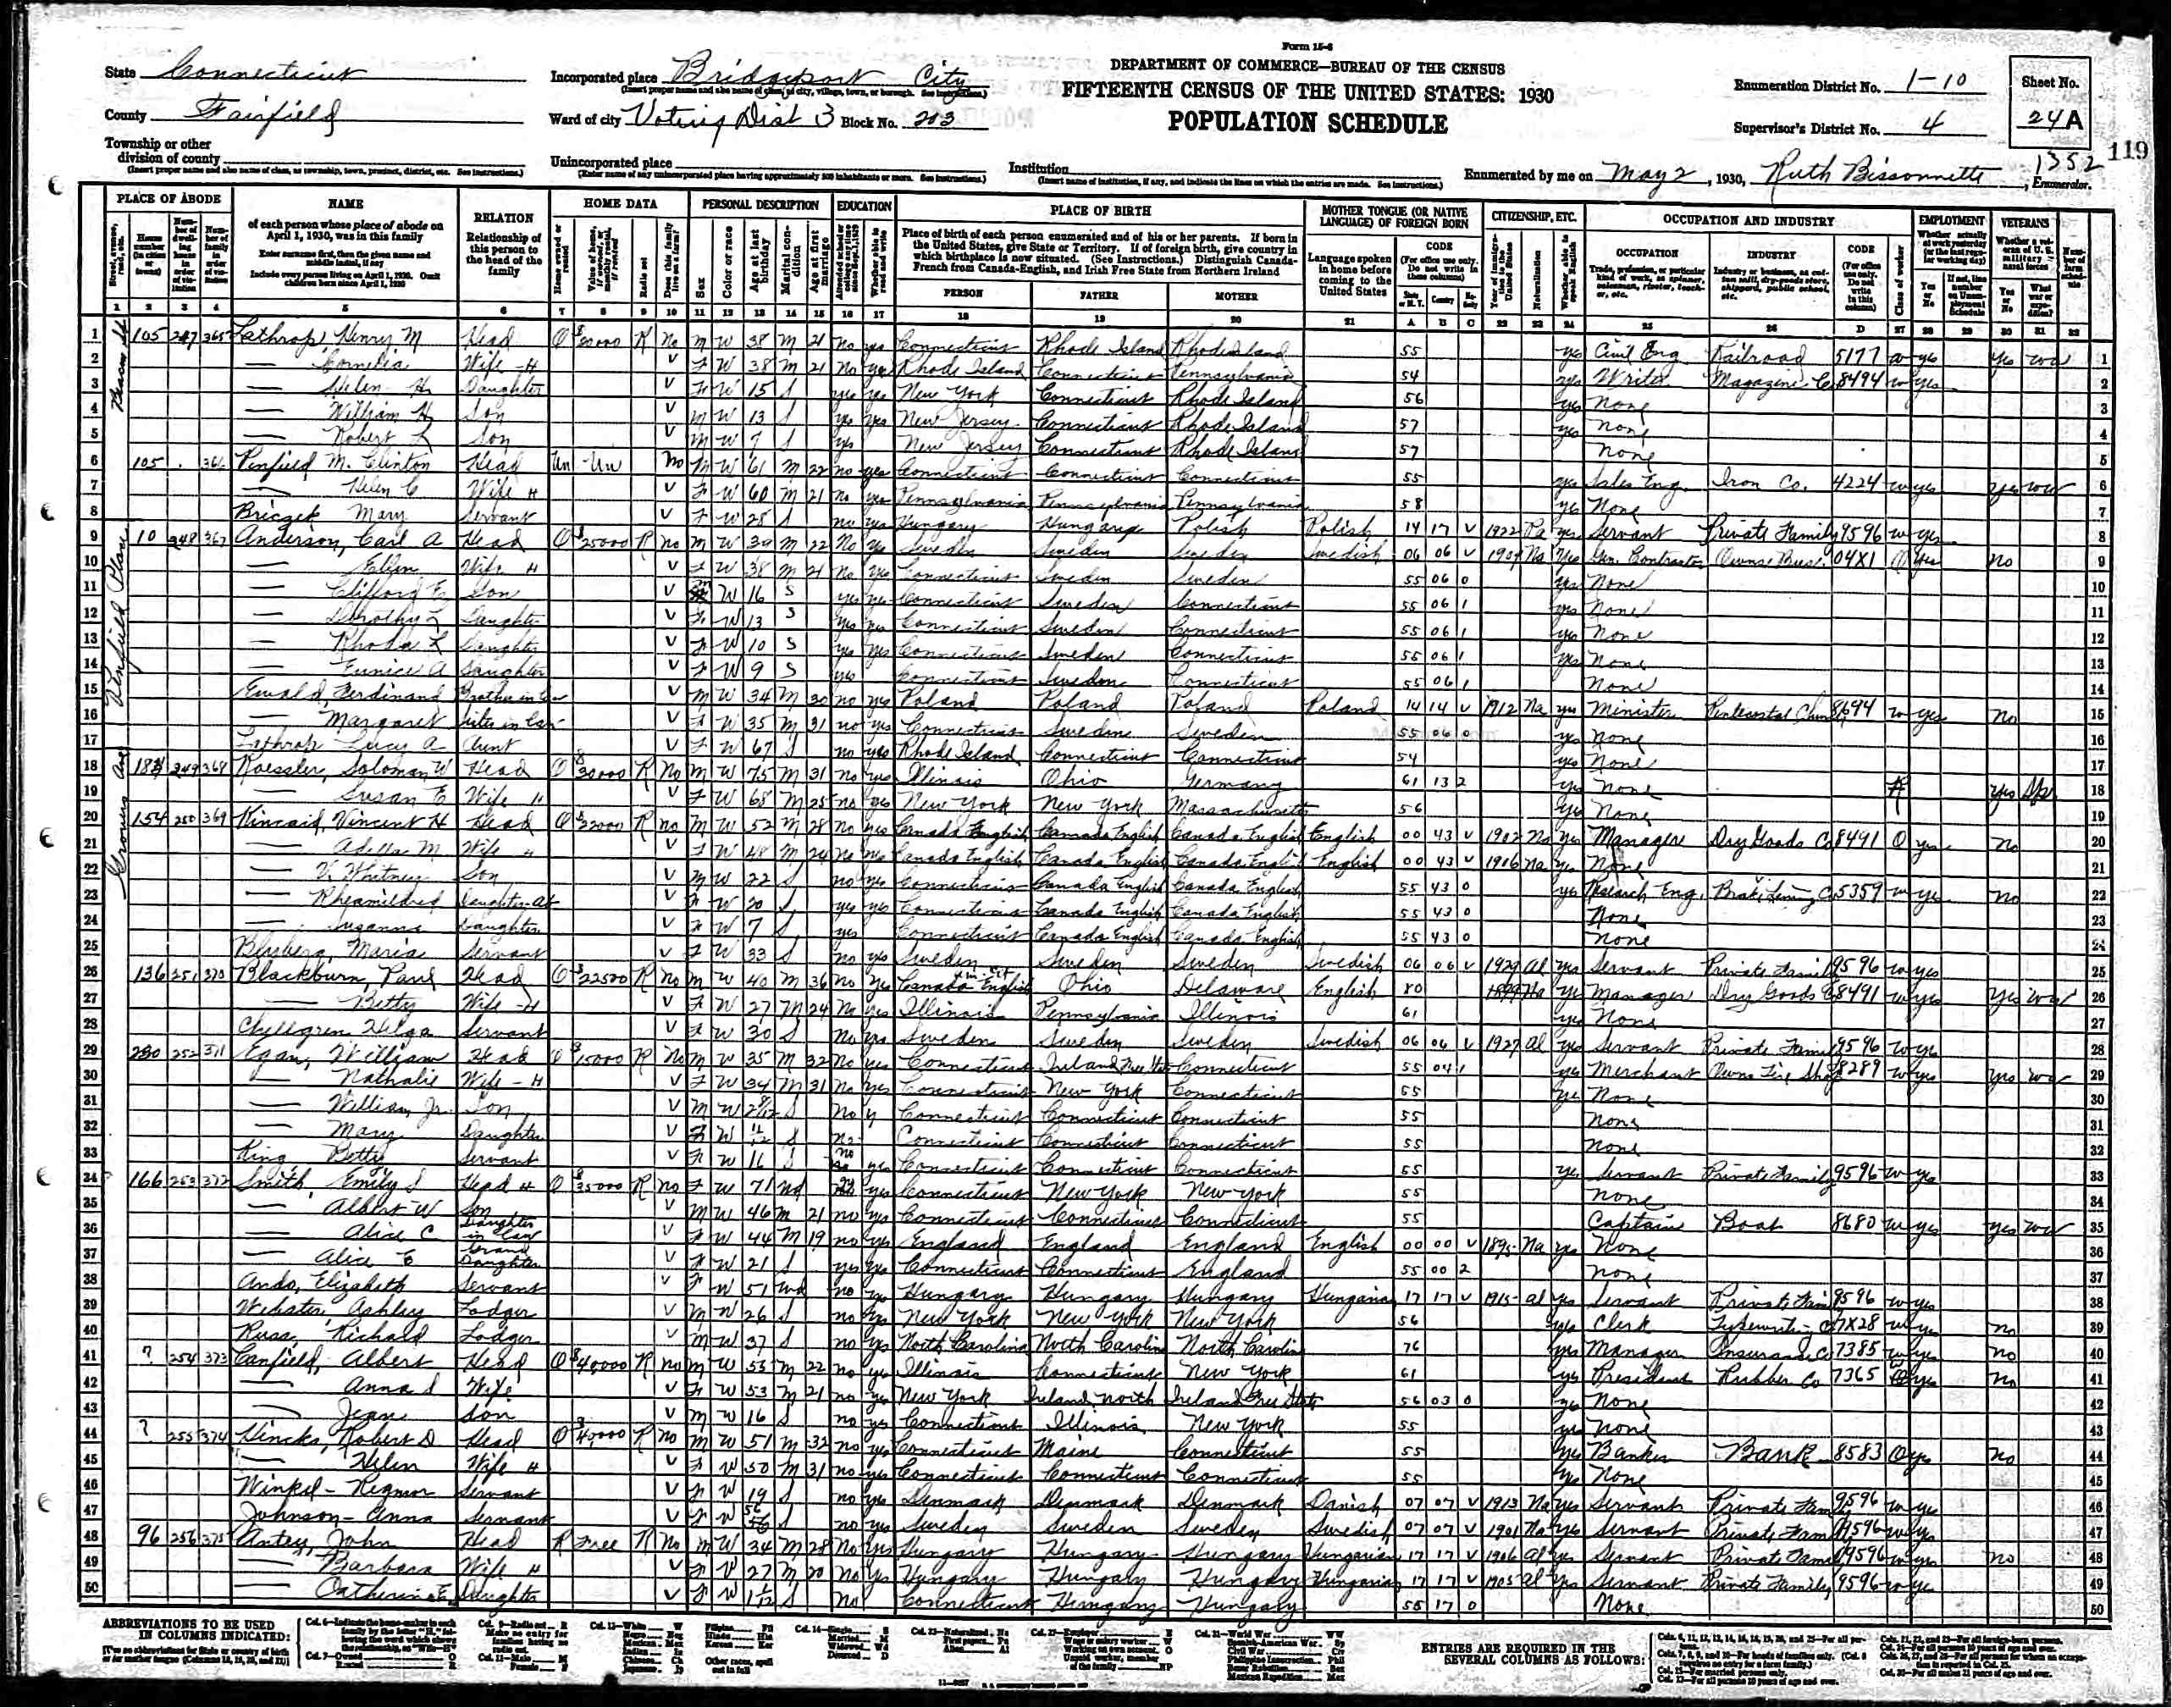 Form 15-6
State Connecticut
County Fairfield
Township or other division of county
(Insert proper name and also name of class, as township, town, precinct, district, etc. See instructions.)
Incorporated place Bridgeport City
(Insert proper name and also name of class, as city, village, town, or borough. See instructions.)
Ward of city Voting Dist 3 Block No. 203
Unincorporated place
(Enter name of any unincorporated place having approximately 500 inhabitants or more. See instructions.)
DEPARTMENT OF COMMERCE—BUREAU OF THE CENSUS
FIFTEENTH CENSUS OF THE UNITED STATES: 1930
POPULATION SCHEDULE
Institution
(Insert name of institution, if any, and indicate the lines on which the entries are made. See instructions.)
Enumeration District No. 1-10
Supervisor's District No. 4
Sheet No.
24 A
119
1352
Enumerated by me on May 2, 1930, Ruth Bissonnette, Enumerator.
PLACE OF ABODE
NAME
of each person whose place of abode on April 1, 1930, was in this family
Enter surname first, then the given name and middle initial, if any
Include every person living on April 1, 1930. Omit children born since April 1, 1930
RELATION
Relationship of this person to the head of the family
HOME DATA
PERSONAL DESCRIPTION
EDUCATION
PLACE OF BIRTH
Place of birth of each person enumerated and of his or her parents. If born in the United States, give State or Territory. If of foreign birth, give country in which birthplace is now situated. (See Instructions.) Distinguish Canada-French from Canada-English, and Irish Free State from Northern Ireland
PERSON FATHER MOTHER
MOTHER TONGUE (OR NATIVE LANGUAGE) OF FOREIGN BORN
Language spoken in home before coming to the United States
CODE
CITIZENSHIP, ETC.
OCCUPATION AND INDUSTRY
OCCUPATION INDUSTRY CODE
EMPLOYMENT
VETERANS
1 105 247 365 Lathrop, Henry M Head O $20000 R No M W 38 M 21 no yes Connecticut Rhode Island Rhode Island 55 yes Civil Eng Railroad 5177 W yes yes WW
2 — Cornelia Wife-H V F W 38 M 21 No yes Rhode Island Connecticut Pennsylvania 54 yes Writer Magazine Co 8494 W yes
3 — Helen H Daughter V F W 15 S yes yes New York Connecticut Rhode Island 56 yes None
4 — William H Son V M W 13 S yes yes New Jersey Connecticut Rhode Island 57 yes None
5 — Robert L Son V M W 7 S yes New Jersey Connecticut Rhode Island 57 None
6 105 366 Penfield, M. Clinton Head Un Un No M W 61 M 22 no yes Connecticut Connecticut Connecticut 55 yes Sales Eng. Iron Co. 4224 W yes yes WW
7 — Helen C Wife H V F W 60 M 21 No yes Pennsylvania Pennsylvania Pennsylvania 58 yes None
8 Mary Servant V F W 28 S no yes Hungary Hungary Polish Polish 14 17 V 1922 Pa yes Servant Private Family 9596 W yes
9 10 248 367 Anderson, Carl A Head O $25000 R no M W 39 M 22 No yes Sweden Sweden Sweden Swedish 06 06 V 1904 Na yes Gen. Contractor Owns Busi. 04X1 O yes No
10 — Wife H V F W 38 M 21 No yes Connecticut Sweden Sweden 55 06 0 yes None
11 — Clifford E Son V M W 16 S yes yes Connecticut Sweden Connecticut 55 06 1 yes None
12 — Dorothy L Daughter V F W 13 S yes yes Connecticut Sweden Connecticut 55 06 1 yes None
13 — Rhoda L Daughter V F W 10 S yes yes Connecticut Sweden Connecticut 55 06 1 yes None
14 — Eunice A Daughter V F W 9 S yes Connecticut Sweden Connecticut 55 06 1 None
15 Ewald, Ferdinand Brother in law V M W 34 M 30 no yes Poland Poland Poland Poland 14 14 V 1912 Na yes Minister Pentecostal Church 8694 W yes No
16 — Margaret Sister in law V F W 35 M 31 no yes Connecticut Sweden Sweden 55 06 0 yes None
17 Lathrop Lucy A Aunt V F W 67 S no yes Rhode Island Connecticut Connecticut 54 yes None
18 249 368 Roessler, Soloman W Head O $30000 R No M W 75 M 31 no yes Illinois Ohio Germany 61 13 2 yes None yes Sp
19 — Susan E Wife H V F W 68 M 25 no yes New York New York Massachusetts 56 yes None
20 154 250 369 Kincaid, Vincent H Head O $22000 R no M W 52 M 28 No yes Canada English Canada English Canada English English 00 43 V 1902 Na yes Manager Dry Goods Co 8491 O yes No
21 — Adella M Wife H V F W 48 M 24 No yes Canada English Canada English Canada English English 00 43 V 1906 Na yes None
22 — V. Whitney Son V M W 22 S no yes Connecticut Canada English Canada English 55 43 0 yes Research Eng. Brake Lining Co 5359 W yes No
23 — Rheamildred Daughter V F W 20 S yes yes Connecticut Canada English Canada English 55 43 0 None
24 — Susanne Daughter V F W 7 S yes Connecticut Canada English Canada English 55 43 0 None
25 Maria Servant V F W 33 S no yes Sweden Sweden Sweden Swedish 06 06 V 1929 Al yes Servant Private Family 9596 W yes
26 136 251 370 Blackburn, Paul Head O $22500 R no M W 40 M 36 no yes Canada English Ohio Delaware English 80 1899 Na yes Manager Dry Goods Co 8491 W yes yes WW
27 — Betty Wife-H V F W 27 M 24 No yes Illinois Pennsylvania Illinois 61 yes None
28 Chellgren Helga Servant V F W 30 S No yes Sweden Sweden Sweden Swedish 06 06 V 1927 Al yes Servant Private Family 9596 W yes
29 252 371 Egan, William Head O $15000 R No M W 35 M 32 No yes Connecticut Ireland Free State Connecticut 55 04 1 yes Merchant Owns Shop 8289 W yes yes WW
30 — Nathalie Wife-H V F W 34 M 31 No yes Connecticut New York Connecticut 55 yes None
31 — William Jr. Son V M W S No Connecticut Connecticut Connecticut 55 None
32 — Mary Daughter V F W 11/12 S No Connecticut Connecticut Connecticut 55 None
33 King Betty Servant V F W 16 S no yes Connecticut Connecticut Connecticut 55 yes Servant Private Family 9596 W yes
34 166 253 372 Smith, Emily S Head H O $35000 R no F W 71 Wd no yes Connecticut New York New York 55 None
35 — Albert W Son V M W 46 M 21 no yes Connecticut Connecticut Connecticut 55 Captain Boat 8680 W yes yes WW
36 — Alice C Daughter in law V F W 44 M 19 no yes England England England English 00 00 V 1895 Na yes None
37 — Alice E Grand Daughter V F W 21 S yes yes Connecticut Connecticut England 55 00 2 None
38 Ando, Elizabeth Servant V F W 51 Wd no yes Hungary Hungary Hungary Hungarian 17 17 V 1915 Al yes Servant Private Family 9596 W yes
39 Webster, Ashley Lodger V M W 26 S no yes New York New York New York 56 yes Clerk Typewriting Co 7X28 W yes no
40 Russ, Richard Lodger V M W 37 S no yes North Carolina North Carolina North Carolina 76 yes Manager Insurance Co 7385 W yes no
41 ? 254 373 Canfield, Albert Head O $40,000 R no M W 53 M 22 no yes Illinois Connecticut New York 61 yes President Rubber Co 7365 yes no
42 — Anna S Wife V F W 53 M 21 no yes New York Ireland North Ireland Free State 56 03 0 yes None
43 — Jean Son V M W 16 S no yes Connecticut Illinois New York 55 yes None
44 ? 255 374 Hincks, Robert D Head O $40,000 R no M W 51 M 32 no yes Connecticut Maine Connecticut 55 yes Banker Bank 8583 O yes no
45 — Helen Wife H V F W 50 M 31 no yes Connecticut Connecticut Connecticut 55 yes None
46 Winkel - Rigmor Servant V F W 19 S no yes Denmark Denmark Denmark Danish 07 07 V 1913 Na yes Servant Private Family 9596 W yes
47 Johnson - Anna Servant V F W 56 S no yes Sweden Sweden Sweden Swedish 07 07 V 1901 Na yes Servant Private Family 9596 W yes
48 96 256 375 Antey, John Head R Free R No M W 34 M 28 No yes Hungary Hungary Hungary Hungarian 17 17 V 1906 Al yes Servant Private Family 9596 W yes no
49 — Barbara Wife H V F W 27 M 20 No yes Hungary Hungary Hungary Hungarian 17 17 V 1905 Al yes Servant Private Family 9596 W yes
50 — Catherine E Daughter V F W 1 1/12 S No Connecticut Hungary Hungary 55 17 0 None
Penfield Place
ABBREVIATIONS TO BE USED IN COLUMNS INDICATED:
ENTRIES ARE REQUIRED IN THE SEVERAL COLUMNS AS FOLLOWS: